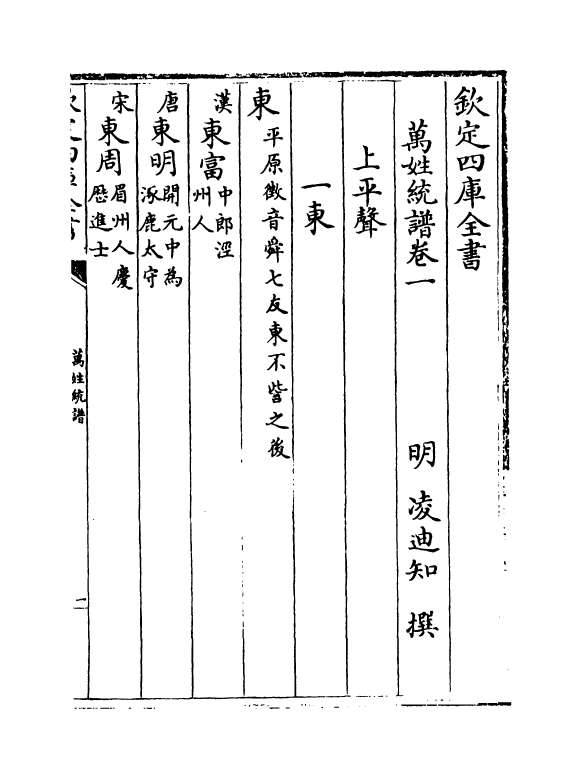 欽定四庫全書
萬姓統譜卷一
明 凌迪知 撰
上平聲
一東
東 平原徵音舜七友東不訾之後
漢 東富 中郎涇州人
唐 東明 開元中為涿鹿太守
宋 東周 眉州人慶歴進士
萬姓統譜